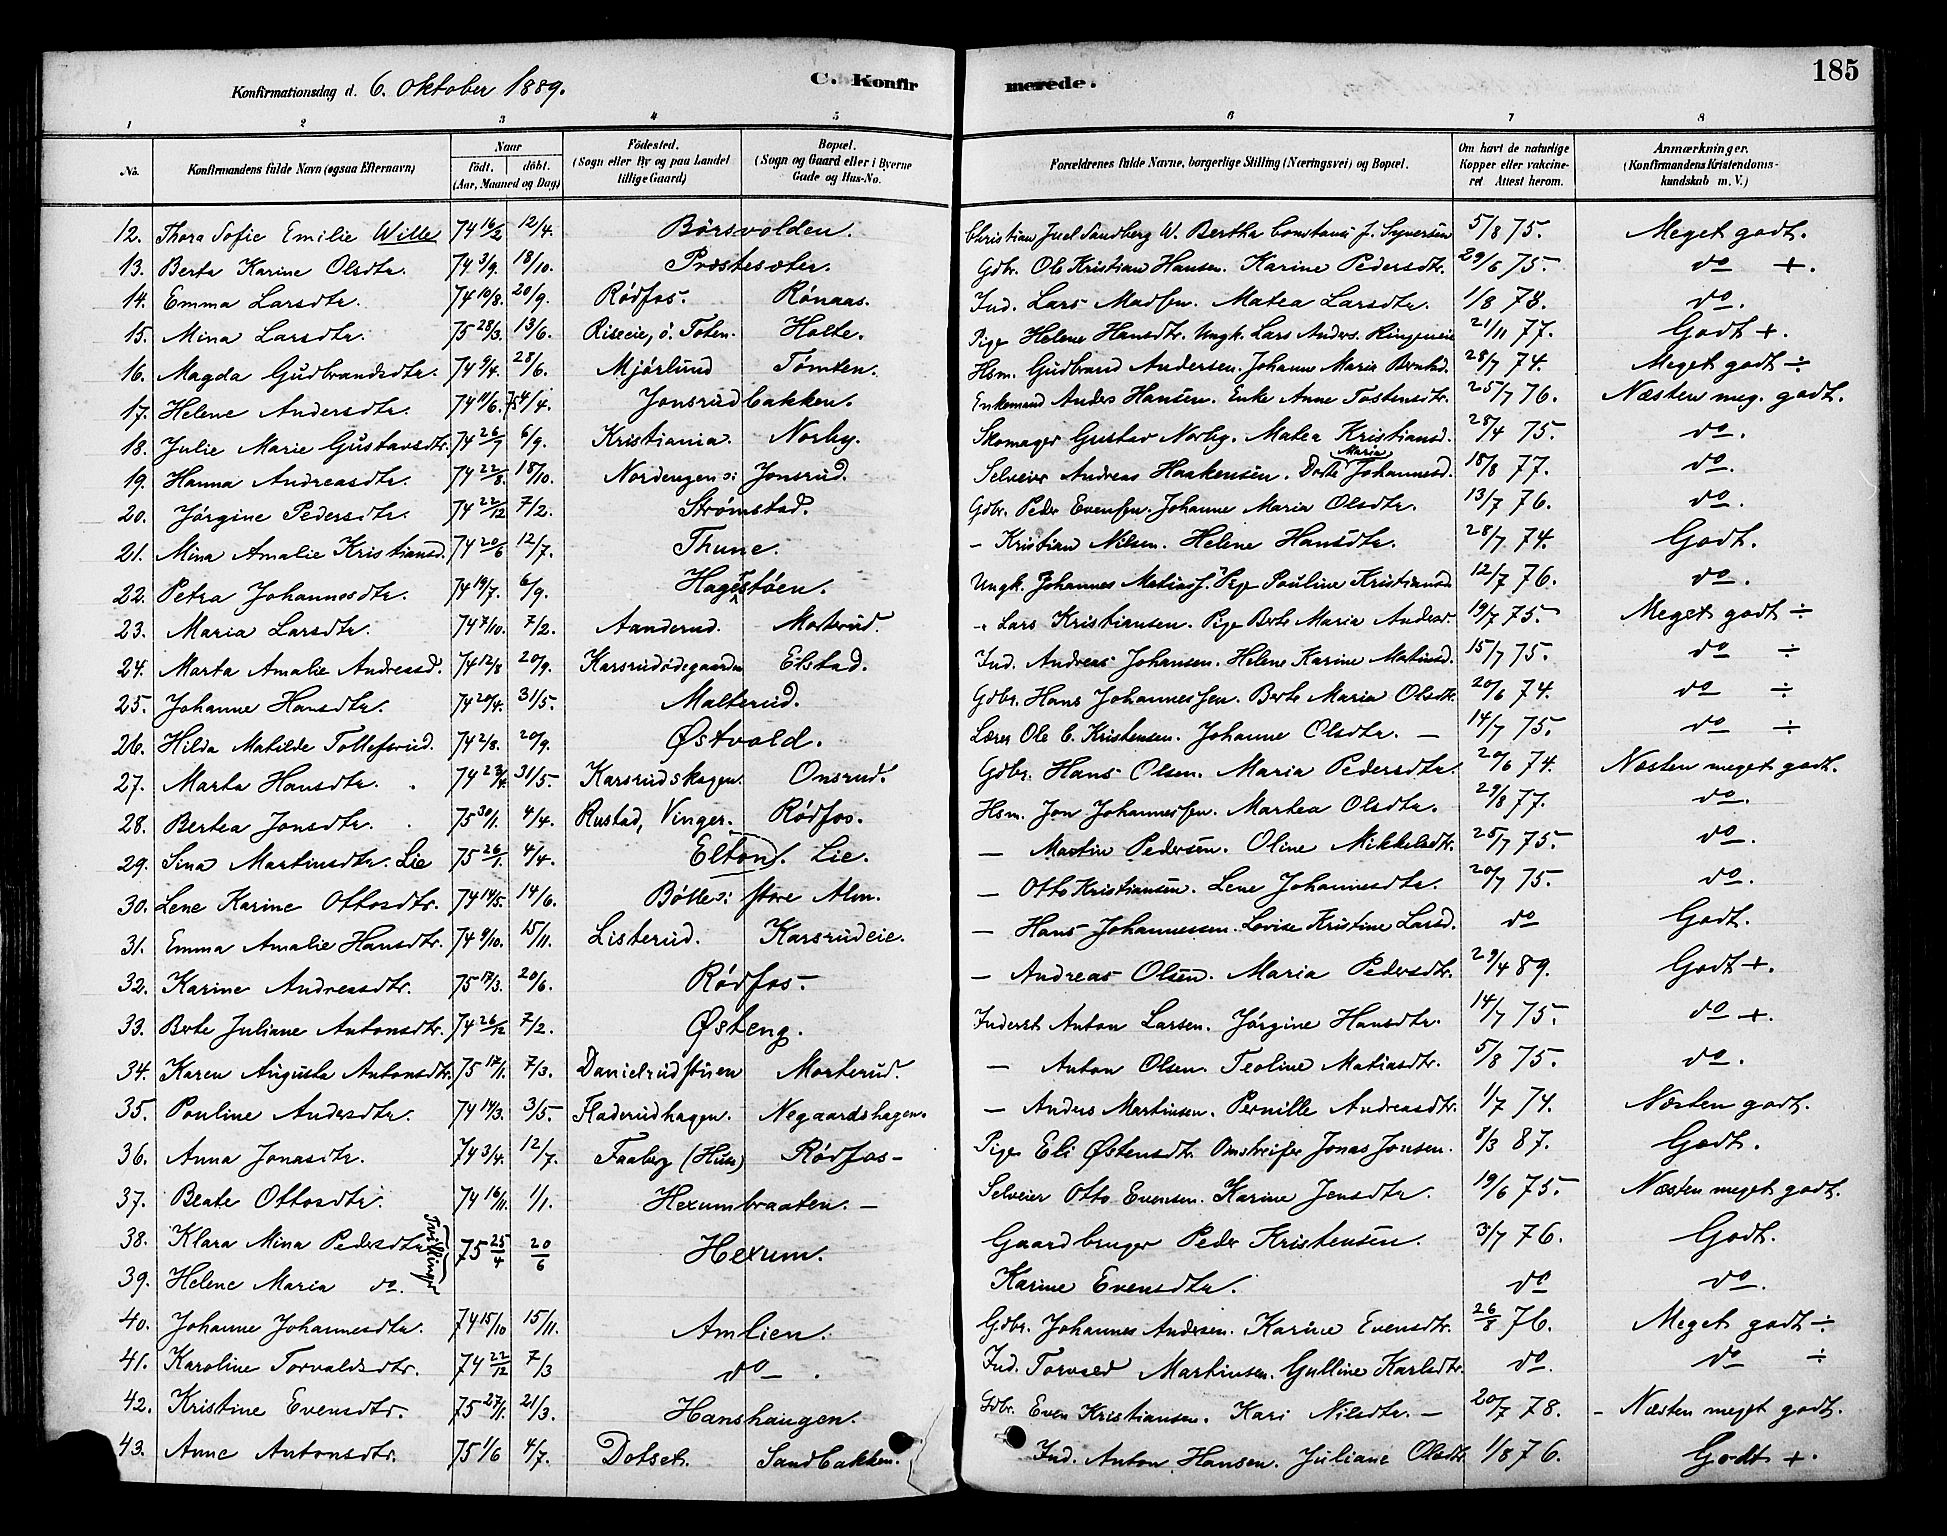 Konfirmationsdag d. 6. Oktober 1889. C. Konfirmerede. 185
1 2 3 4 5 6 7 8
No. Konfirmandens fulde Navn (ogsaa Efternavn) Naar födt. döbt. (Aar, Maaned og Dag) Födested. (Sogn eller By og paa Landet tillige Gaard) Bopæl. (Sogn og Gaard eller i Byerne Gade og Hus-No. Forældrenes fulde Navne, borgerlige Stilling (Næringsvei) og Bopæl. Om havt de naturlige Kopper eller vakcineret Attest herom. Anmærkninger. (Konfirmandens Kristendomskundskab m. V.)
12. Thora Sofie Emilie Wille 74 16/2 12/4. Börsvolden. Christian Juel Sandberg W. Bertha Constance f. Syversen 5/8 75. Meget godt.
13. Berte Karine Olsdtr. 74 3/9. 18/10. Præstesæter. Gdbr. Ole Kristian Hansen. Karine Pedersdtr. 29/6 75. do +.
14. Emma Larsdtr. 74 10/8. 20/9. Rödfos. Rönaas. Ind. Lars Madsen. Matea Larsdtr. 1/8 78. do.
15. Mina Larsdtr. 75 28/3. 13/6. Riseeie, ö. Toten. Holte. Pige Helene Hansdtr. Ungk. Lars Anders. 21/11 77. Godt +.
16. Magda Gudbrandsdtr. 74 9/4. 28/6. Mjörlund Tömten. Hsm. Gudbrand Andersen. Johanne Maria Berntsd. 28/7 74. Meget godt ÷
17. Helene Andersdtr. 74 11/6. 75 4/4. Jonsrudbakken. Enkemand Anders Hansen. Enke Anne Tostensdtr. 25/7 76. Næsten meg. godt.
18. Julie Marie Gustavsdtr. 74 26/7 6/9. Kristiania. Norby. Skomager Gustav Norby. Matea Kristiansd. 28/4 75. do.
19. Hanna Andreasdtr. 74 22/8. 18/10. Nordengen i Jonsrud. Selveier Andreas Haakensen. Dorte Maria Johannesd. 18/8 77. do.
20. Jörgine Pedersdtr. 74 22/12 7/2. Strömstad. Gdbr. Peder Evensen. Johanne Maria Olsdtr. 13/7 76. do.
21. Mina Amalie Kristiansd. 74 20/6 12/7. Thune. - Kristian Nilsen. Helene Hansdtr. 28/7 74. Godt.
22. Petra Johannesdtr. 74 19/7. 6/9. Hagestöen. Ungk. Johannes Matiass. Pige Pauline Kristiansd 12/7 76. do.
23. Maria Larsdtr. 74 7/10. 7/2. Aanderud. Malterud. " Lars Kristiansen. Pige Berte Maria Andersd. 19/7 75. Meget godt ÷
24. Marta Amalie Andreasd. 74 12/8 20/9. Karsrudödegaarden Elstad. Ind. Andreas Johansen. Helene Karine Matiasd. 15/7 75. do ÷
25. Johanne Hansdtr. 74 20/4. 31/5. Malterud. Gdbr. Hans Johannessen. Berte Maria Olsdtr. 20/6 74. do ÷
26. Hilda Matilde Tollefsrud. 74 2/8. 20/9. Østvold. Lærer Ole C. Kristensen. Johanne Olsdtr. - 14/7 75. do ÷
27. Marta Hansdtr. 74 23/4. 31/5. Karsrudskagen. Onsrud. Gdbr. Hans Olsen. Maria Pedersdtr. 20/6 74. Næsten meget godt.
28. Bertea Jonsdtr. 75 30/1. 4/4. Rustad, Vinger. Rödfos. Hsm. Jon Johannessen. Martea Olsdtr. 29/8 77. do.
29. Sina Martinsdtr. Lie 75 26/1. 4/4. Elton. Lie. - Martin Pedersen. Oline Mikkelsdtr. 25/7 75. do.
30. Lene Karine Ottosdtr. 74 14/5. 14/6. Bölle i store Alm. - Otto Kristiansen. Lene Johannesdtr. 20/7 75. do.
31. Emma Amalie Hansdtr. 74 9/10. 15/11. Listerud. Karsrudeie. - Hans Johannessen. Lovise Kristine Larsd. do Godt.
32. Karine Andreasdtr. 75 17/3. 20/6. Rödfos. - Andreas Olsen. Maria Pedersdtr. 29/4 89. Godt +.
33. Berte Juliane Antonsdtr. 74 26/12 7/2. Østeng. Inderst Anton Larsen. Jörgine Hansdtr. 14/7 75. do +.
34. Karen Augusta Antonsdtr. 75 17/1. 7/3. Danielrudstuen Morterud. - Anton Olsen. Teoline Matiasdtr. 5/8 75. do.
35. Pouline Andersdtr. 74 14/3. 3/5. Fladerudhagen. Negaardshagen. - Anders Martinsen. Pernille Andreasdtr. 1/7 74. Næsten godt.
36. Anna Jonasdtr. 74 3/4. 12/7. Faaberg (Hus) Rödfos - Pige Eli Østensdtr. Omstreifer Jonas Jonsen. 8/3 87. Godt.
37. Beate Ottosdtr. 74 16/11. 1/1. Hexumbraaten. - Selveier Otto Evensen. Karine Jensdtr. 19/6 75. Næsten meget godt.
38. Klara Mina Pedersdtr. Tvillinger 75 25/4 20/6 Hexum. Gaardbruger Peder Kristensen. 3/7 76. Godt.
39. Helene Maria do. Karine Evensdtr. do do.
40. Johanne Johannesdtr. 74 15/10 15/11. Amlien. Gdbr. Johannes Andersen. Karine Evensdtr. 26/8 76. Meget godt ÷
41. Karoline Torvaldsdtr. 74 22/12 7/3 do. Ind. Torvald Martinsen. Gulline Karlsdtr. do. do ÷
42. Kristine Evensdtr. 75 27/1. 21/3. Hanshaugen. Gdbr. Even Kristiansen. Kari Nilsdtr. - 20/7 78. - Næsten meget godt.
43. Anne Antonsdtr. 75 1/6 4/7. Dotset. Sandbakken. Ind. Anton Hansen. Juliane Olsdtr. 1/8 76. Godt +.